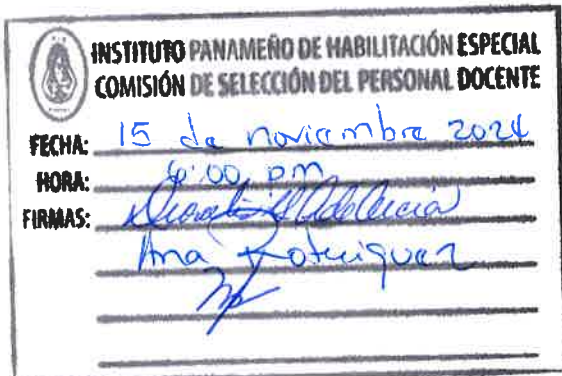 INSTITUTO PANAMEÑO DE HABILITACIÓN ESPECIAL
COMISIÓN DE SELECCIÓN DEL PERSONAL DOCENTE
FECHA: 15 de noviembre 2024
HORA: 6:00 pm
FIRMAS:
Ana